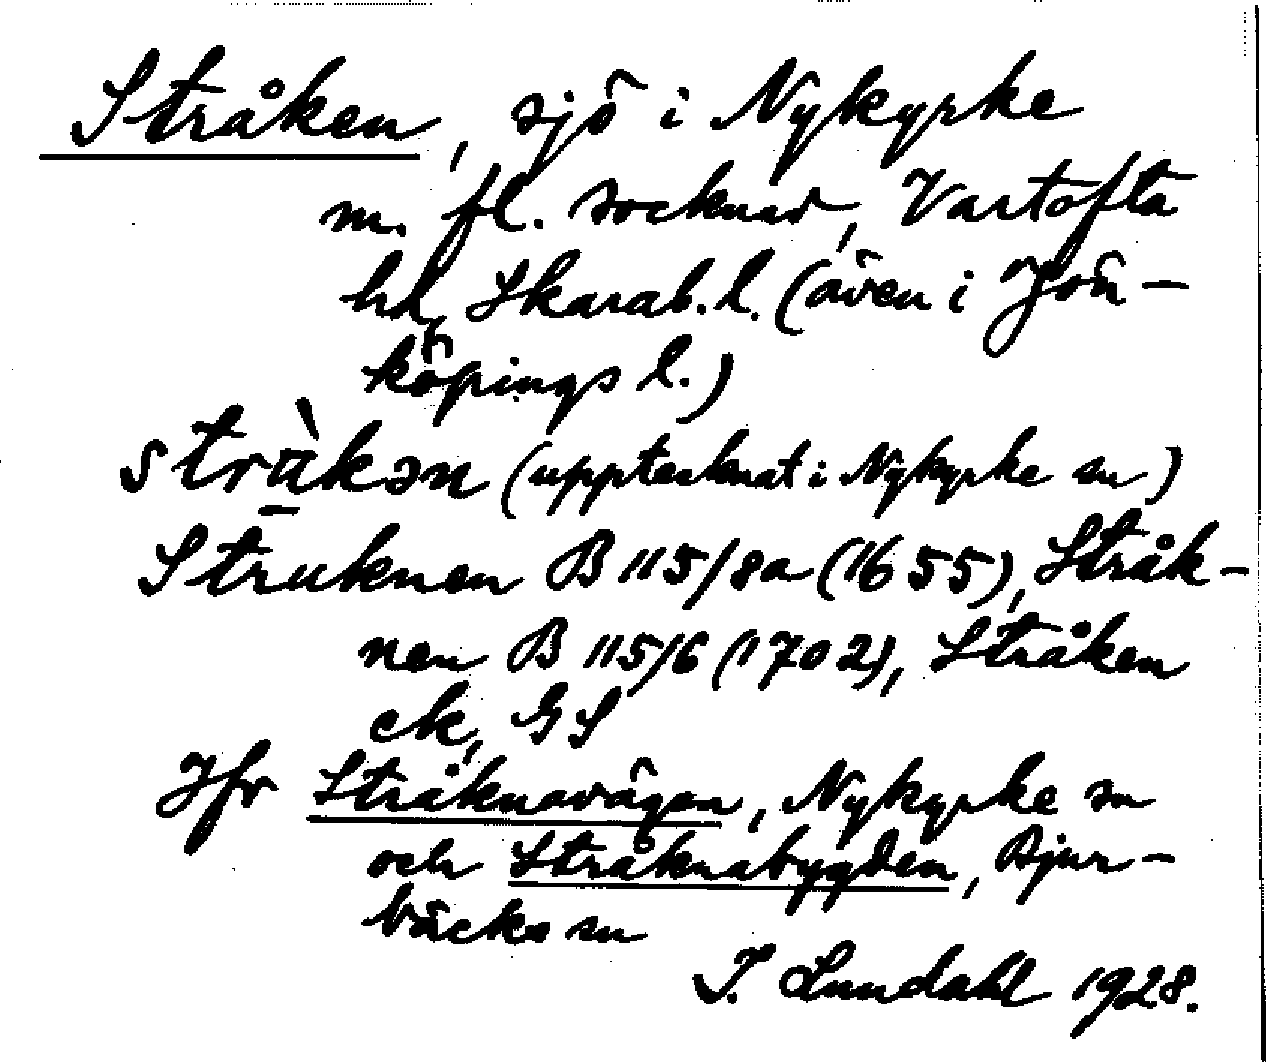 Stråken, sjö i Nykyrke
m. fl. socknar, Vartofta
hd, Skarab. l. (även i Jön-
köpings l.)
stràkən (upptecknat i Nykyrke sn)
Struknen B 115/8a (1655), Stråk-
nen B 115/6 (1702), Stråken
ek, GS
Jfr Stråknavägen, Nykyrke sn
och Stråknabygden, Bjur-
bäcks sn
I. Lundahl 1928.